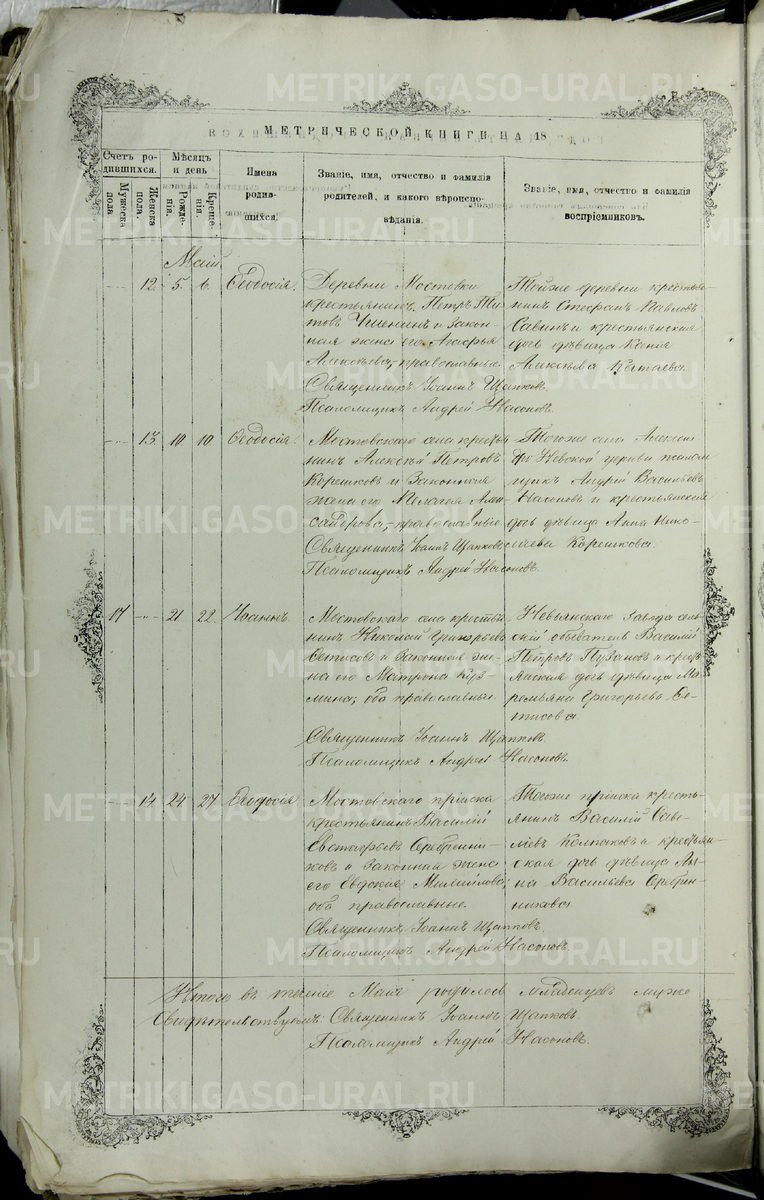 МЕТРИЧЕСКОЙ КНИГИ НА 18
Счетъ ро-
дившихся.
Мужеска
пола
Женска
пола.
Мѣсяцъ
и день
Рожде-
нія.
Креще-
нія.
Имена
родив-
шихся.
Званіе, имя, отчество и фамилія
родителей, и какого вѣроиспо-
вѣданія.
Званіе, имя, отчество и фамилія
воспріемниковъ.
Май
12. 5. 6. Ѳеодосія.
Деревни Мостовки
крестьянинъ Петръ Ти-
товъ и закон-
ная жена его Агафья
Алексѣева, православные
Священникъ Іоаннъ Щапковъ
Псаломщикъ Андрей Насоновъ
Тойже деревни крестья-
нинъ Стефанъ Павловъ
Савинъ и крестьянская
дочь дѣвица Ксенія
Алексѣева
13. 10 10 Ѳеодосія.
Мостовскаго села крестья-
нинъ Алексѣй Петровъ
Корешковъ и законная
жена его Пелагея Алек-
сандрова, православные
Священникъ Іоаннъ Щапковъ
Псаломщикъ Андрей Насоновъ.
Тогоже села Алексан-
дро Невской церкви псалом-
щикъ Андрей Васильевъ
Насоновъ и крестьянская
дочь дѣвица Анна Нико-
лаева Корешкова.
17 21 22 Іоаннъ.
Мостовскаго села крестья-
нинъ Николай Григорьевъ
Сетисовъ и законная же-
на его Матрона Куз-
мина; оба православные
Священникъ Іоаннъ Щапковъ
Псаломщикъ Андрей Насоновъ
Невьянскаго завода сель-
скій обыватель Василій
Петровъ Пузановъ и кресть-
янская дочь дѣвица Ма-
ремьяна Григорьева Се-
тисова
14 24 27
Мостовскаго пріиска
крестьянинъ Василій
Евстафьевъ Серебрени-
ковъ и законная жена
его Евдокія Михайлова;
оба православные.
Священникъ Іоаннъ Щапковъ.
Псаломщикъ Андрей Насоновъ
Тогоже пріиска кресть-
янинъ Василій Саве-
льевъ Колпаковъ и крестьян-
ская дочь дѣвица Ан-
на Васильева Серебрен-
никова
Итого въ теченіе Мая родилось младенцев муже
Свидѣтельствуемъ: Священникъ Іоаннъ Щапковъ
Псаломщикъ Андрей Насоновъ.
METRIKI.GASO-URAL.RU